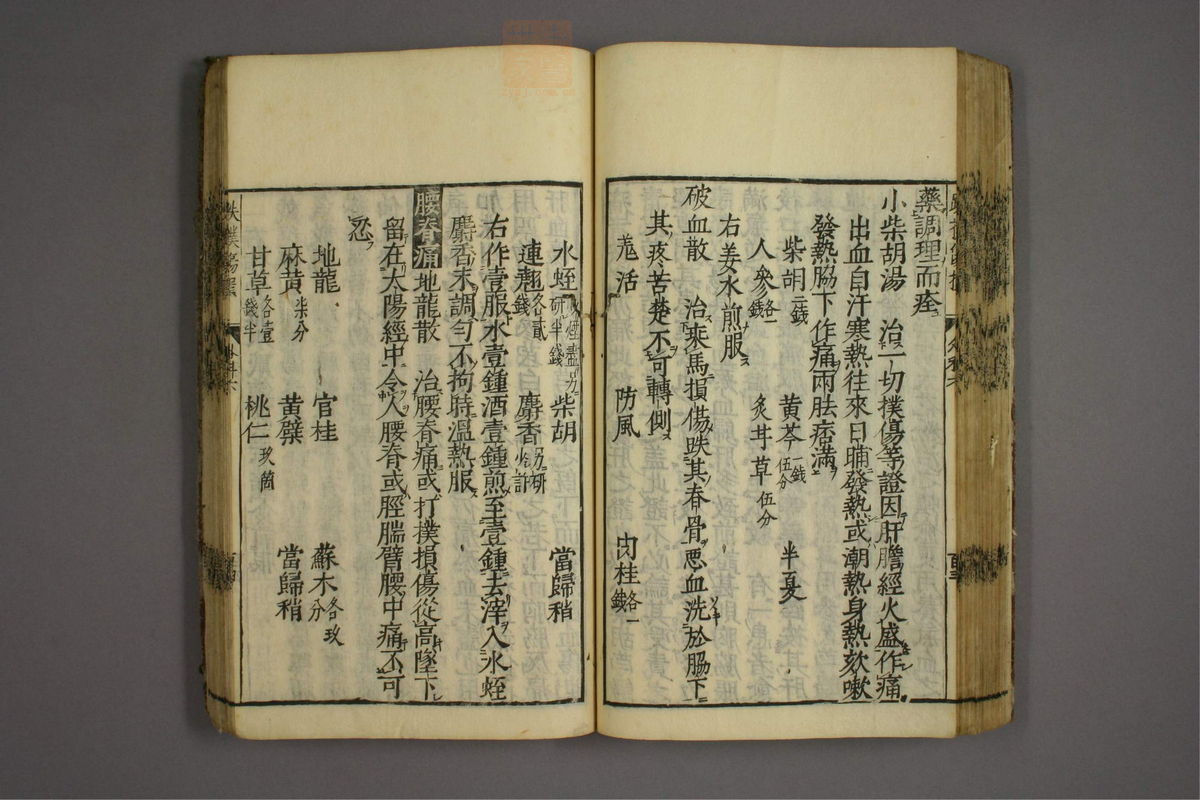 藥調理而痊
小柴胡湯　治一切撲傷等證因肝膽經火盛作痛
出血自汗寒熱往來日晡發熱或潮熱身熱欬嗽
發熱脇下作痛兩胠痞滿
柴胡二錢　黃芩一錢伍分　半夏
人參各一錢　炙甘草伍分
右姜水煎服
破血散　治乘馬損傷跌其脊骨惡血流於脇下
其疼苦楚不可轉側
羗活　防風　肉桂各一錢
水蛭研半錢　柴胡　當歸稍
連翹各貳錢　麝香另研少許
右作壹服水壹鍾酒壹鍾煎至壹鍾去滓入水蛭
麝香末調勻不拘時溫熱服
腰脊痛　地龍散　治腰脊痛或打撲損傷從高墜下
留在太陽經中令人腰脊或脛腨臂腰中痛不可
忍
地龍　官桂　蘇木各玖分
麻黃柒分　黃檗　當歸稍
甘草各壹錢半　桃仁玖箇
跌撲傷損　外科六